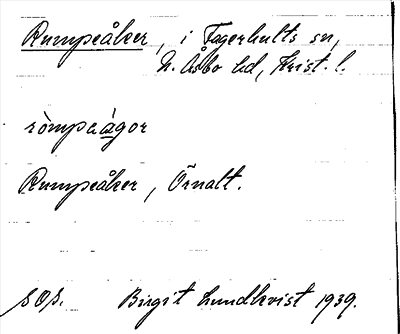 Rumpeåker, i Fagerhults sn,
N. Åsbo hd, Krist. l.
ròmpeágor
Rumpeåker, Örnalt.
SOS. Birgit Lundkvist 1939.